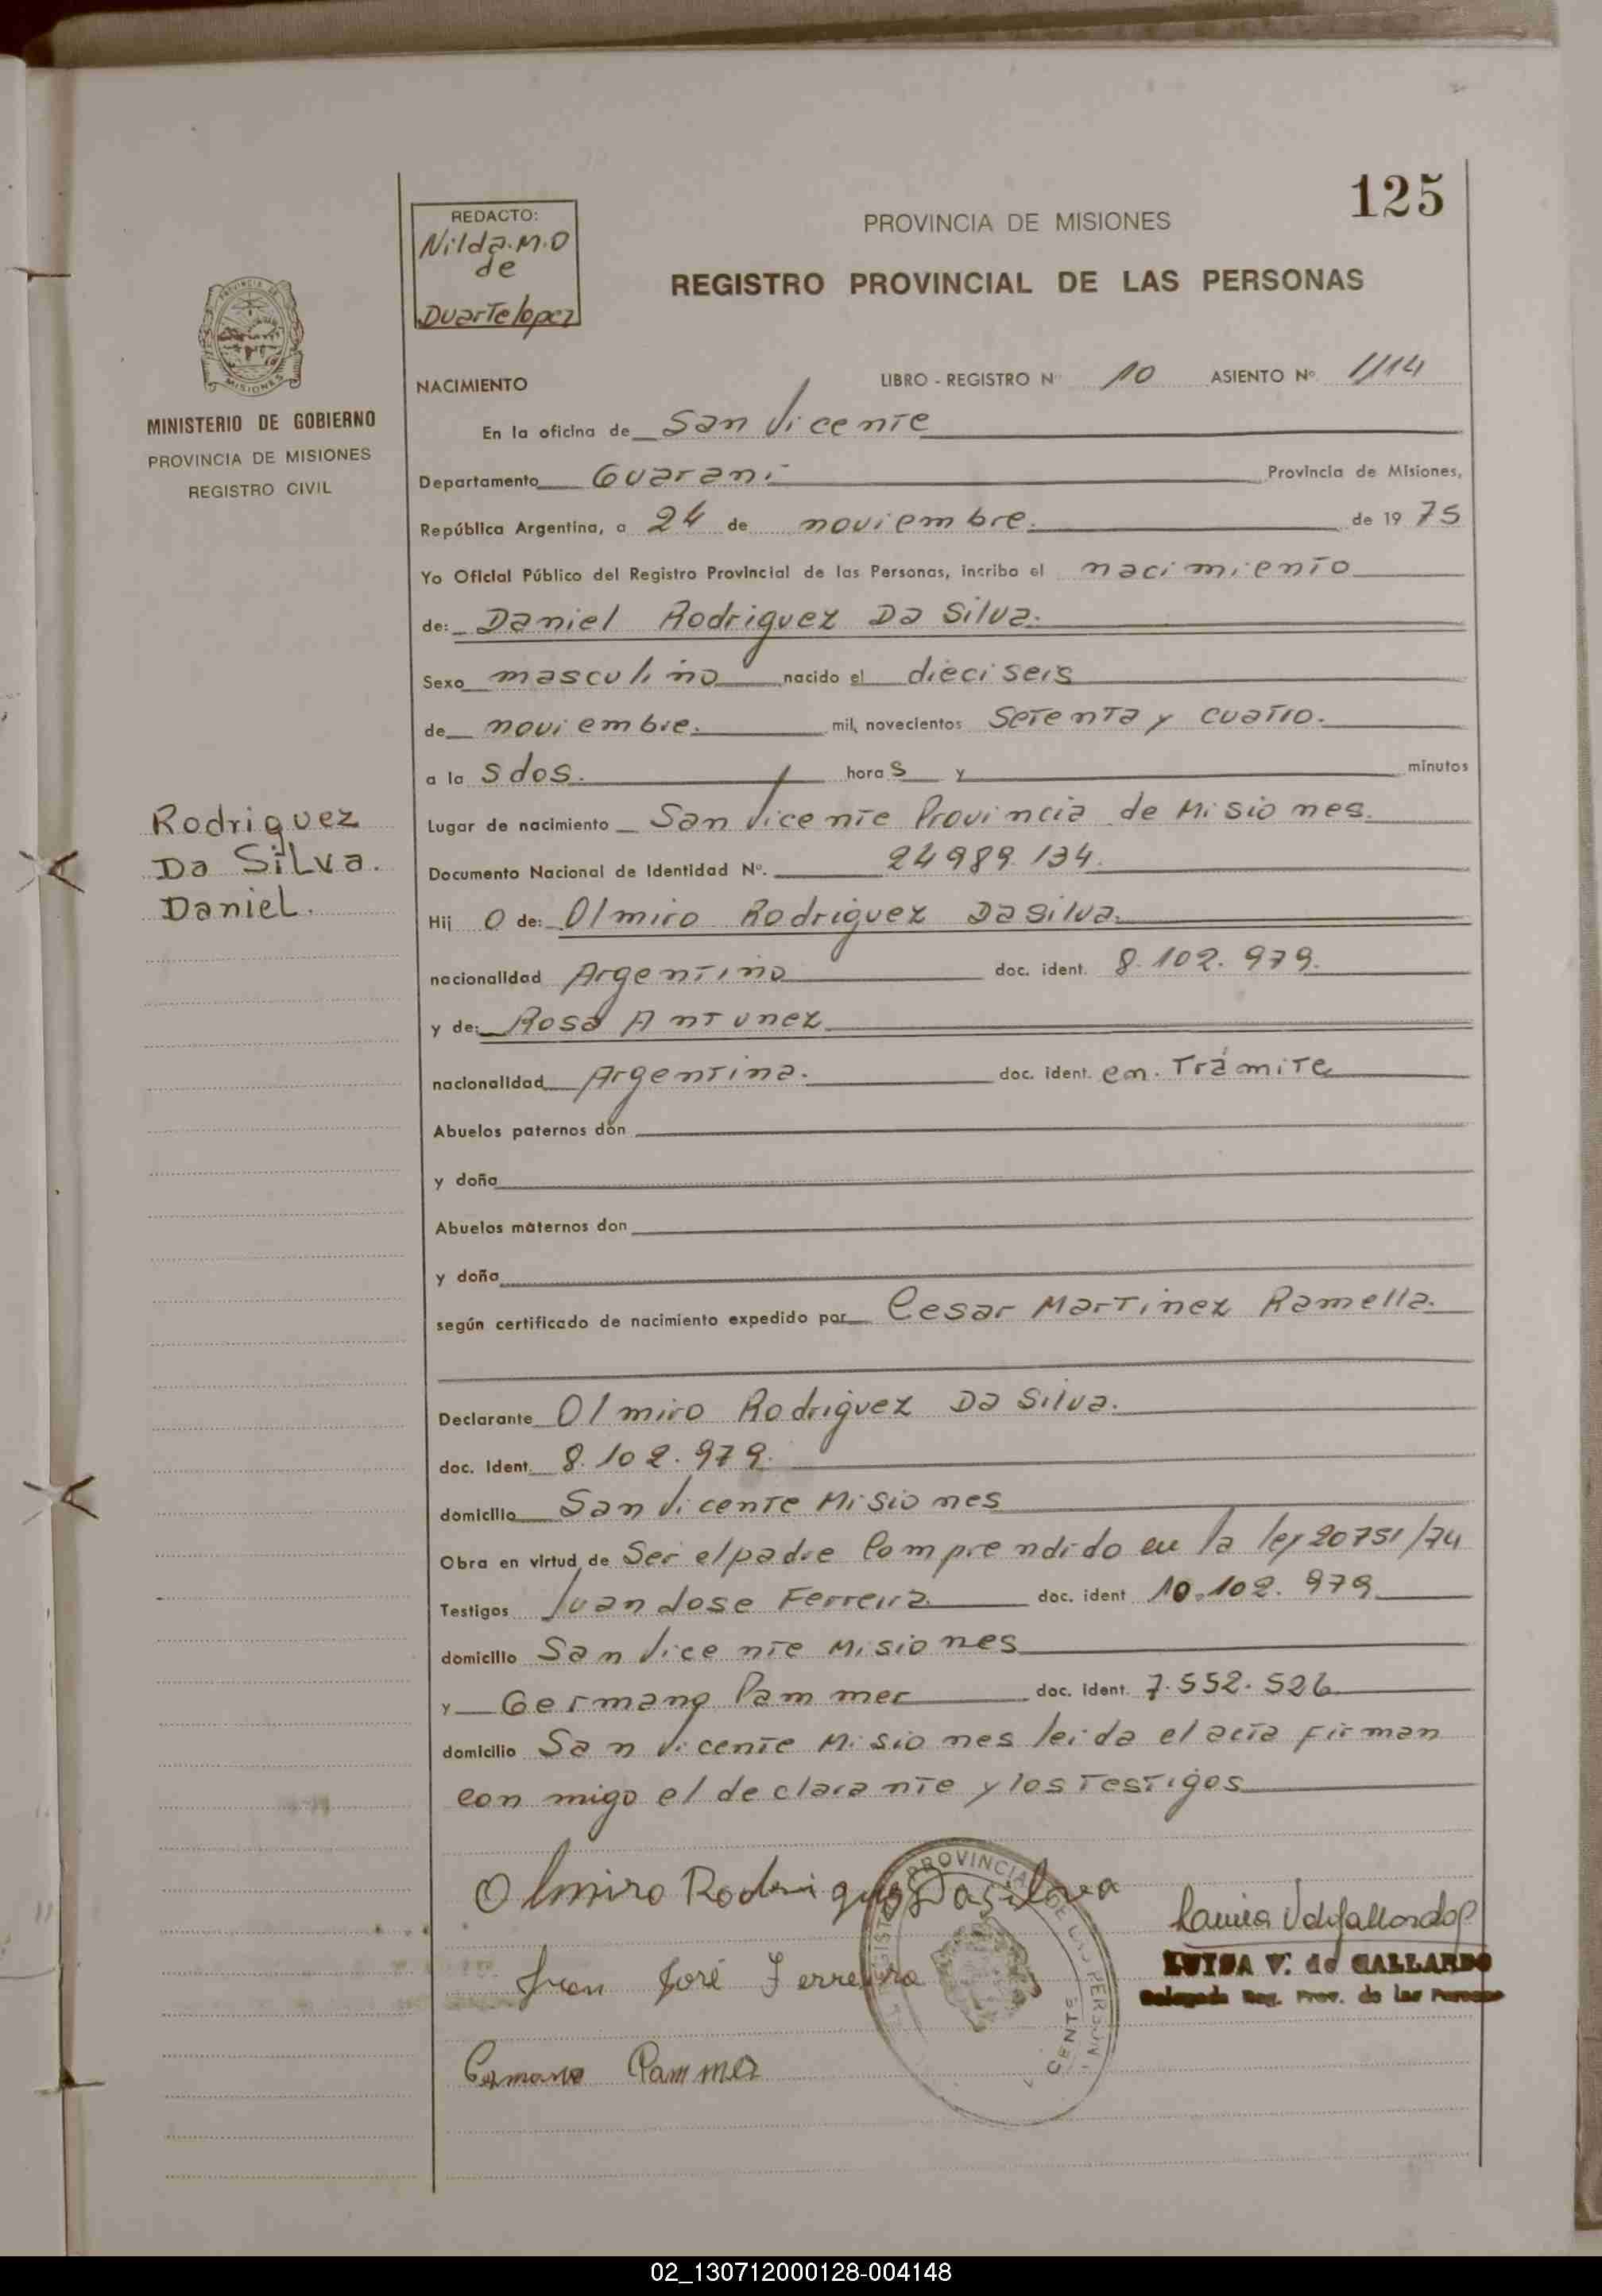 125
REDACTO:
Nilda.M.O
de
Duartelopez
PROVINCIA DE MISIONES
REGISTRO PROVINCIAL DE LAS PERSONAS
MISIONES
MINISTERIO DE GOBIERNO
PROVINCIA DE MISIONES
REGISTRO CIVIL
NACIMIENTO LIBRO - REGISTRO Nº 10 ASIENTO Nº 1/114
En la oficina de San Vicente
Departamento Guaraní Provincia de Misiones,
República Argentina, a 24 de noviembre. de 19 75
Yo Oficial Público del Registro Provincial de las Personas, incribo el nacimiento
de: Daniel Rodriguez Da Silva.
Sexo masculino nacido el dieciseis
de noviembre. mil, novecientos Setenta y cuatro.
a la s dos. hora s y minutos
Lugar de nacimiento San Vicente Provincia de Misiones.
Documento Nacional de Identidad Nº. 24989.134.
Hij o de: Olmiro Rodriguez Dasilva.
nacionalidad Argentino doc. ident. 8.102.979.
y de: Rosa Antunez
nacionalidad Argentina. doc. ident. en. Trámite
Abuelos paternos don
y doña
Abuelos maternos don
y doña
según certificado de nacimiento expedido por Cesar Martinez Ramella.
Declarante Olmiro Rodriguez Da Silva.
doc. Ident. 8.102.979.
domicilio San Vicente Misiones
Obra en virtud de Ser el padre Comprendido en la ley 20751/74
Testigos Juan Jose Ferreira doc. ident 10.102.979
domicilio San Vicente Misiones
y Germano Pammer doc. ident. 7.552.526
domicilio San Vicente Misiones leida el acta Firman
con migo el declarante y los Testigos
Rodriguez
Da Silva.
Daniel.
Olmiro Rodriguez Dasilva
Juan José Ferreira
Germano Pammer
LUISA V. de GALLARDO
Delegada Reg. Prov. de las Personas
02_130712000128-004148